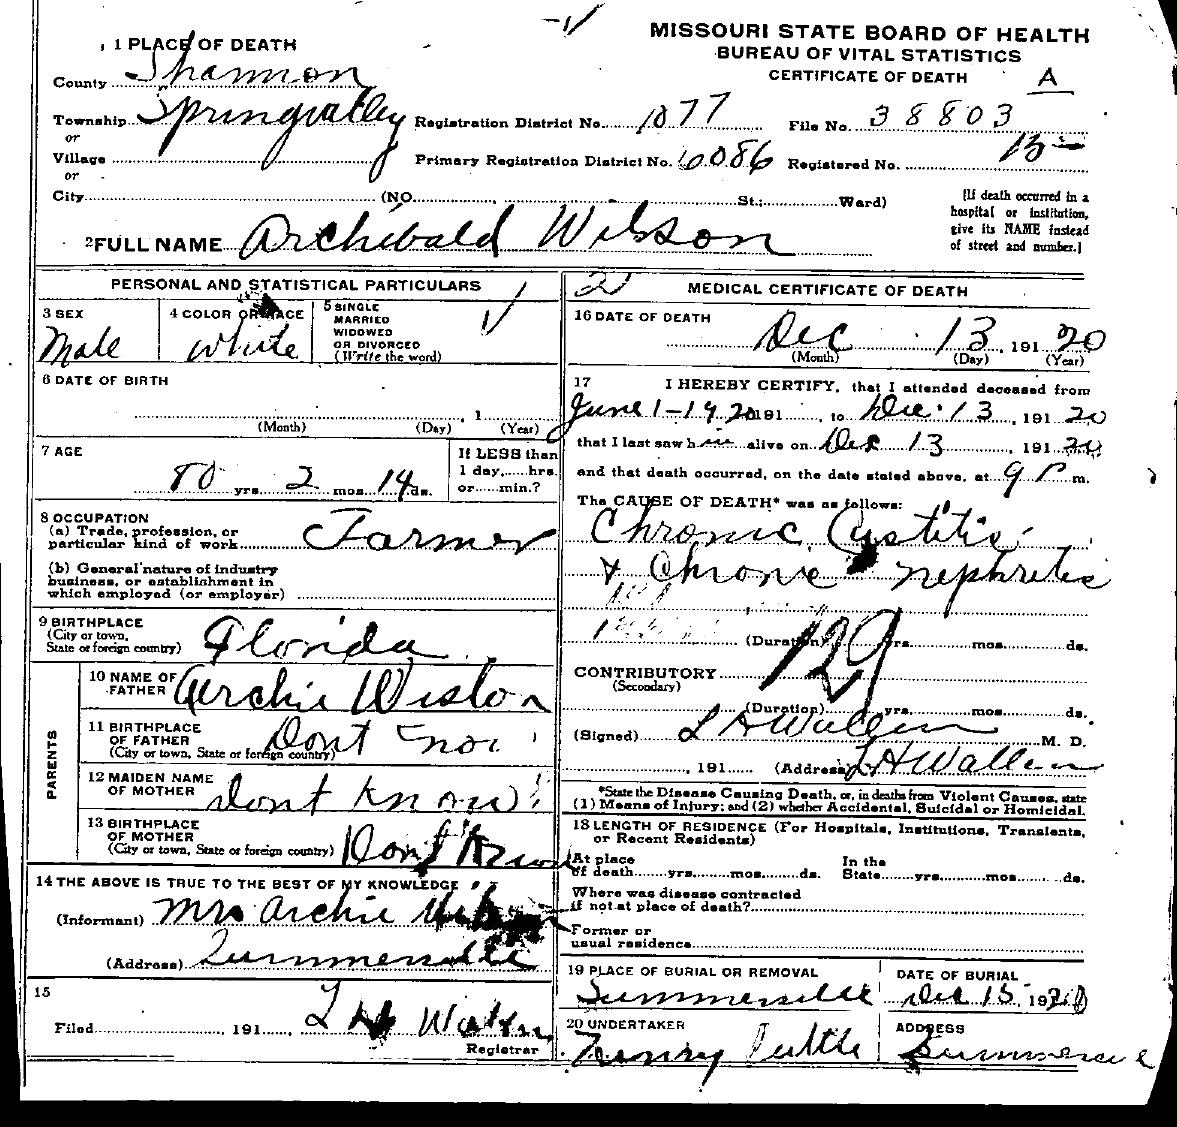 MISSOURI STATE BOARD OF HEALTH
BUREAU OF VITAL STATISTICS
CERTIFICATE OF DEATH A
1 PLACE OF DEATH
County Shannon
Township Springvalley Registration District No. 1077 File No. 38803
or
Village Primary Registration District No. 6086 Registered No. 15
or
City (NO. St.; Ward)
[If death occurred in a
hospital or institution,
give its NAME instead
of street and number.]
2 FULL NAME Archibald Wilson
PERSONAL AND STATISTICAL PARTICULARS
3 SEX
Male
4 COLOR OR RACE
White
5 SINGLE
MARRIED
WIDOWED
OR DIVORCED
(Write the word)
6 DATE OF BIRTH
, 1
(Month) (Day) (Year)
7 AGE
80 yrs. 2 mos. 14 ds.
If LESS than
1 day, hrs.
or min.?
8 OCCUPATION
(a) Trade, profession, or
particular kind of work Farmer
(b) General nature of industry
business, or establishment in
which employed (or employer)
9 BIRTHPLACE
(City or town,
State or foreign country) Florida
PARENTS
10 NAME OF
FATHER Archie Wislon
11 BIRTHPLACE
OF FATHER
(City or town, State or foreign country) Dont
12 MAIDEN NAME
OF MOTHER Dont Know
13 BIRTHPLACE
OF MOTHER
(City or town, State or foreign country) Dont Know
14 THE ABOVE IS TRUE TO THE BEST OF MY KNOWLEDGE
(Informant) Mrs Archie
(Address) Summersville
15
Filed , 191
Registrar
2 MEDICAL CERTIFICATE OF DEATH
16 DATE OF DEATH
Dec 13, 191 20
(Month) (Day) (Year)
17 I HEREBY CERTIFY, that I attended deceased from
June 1 - 1920 191 , to Dec. 13 191 20
that I last saw him alive on Dec 13 , 191 20
and that death occurred, on the date stated above, at 9 P m.
The CAUSE OF DEATH* was as follows:
Chronic Cystitis
+ Chronic nephritis
129
(Duration) yrs. mos. ds.
CONTRIBUTORY
(Secondary)
(Duration) yrs. mos. ds.
(Signed) L H Wallen M. D.
, 191 (Address) L H Wallen
*State the Disease Causing Death, or, in deaths from Violent Causes, state
(1) Means of Injury; and (2) whether Accidental, Suicidal or Homicidal.
18 LENGTH OF RESIDENCE (For Hospitals, Institutions, Transients,
or Recent Residents)
At place In the
of death yrs. mos. ds. State yrs. mos. ds.
Where was disease contracted
if not at place of death?
Former or
usual residence
19 PLACE OF BURIAL OR REMOVAL
Summersville
DATE OF BURIAL
Dec 15 1920
20 UNDERTAKER
Henry Tuttle
ADDRESS